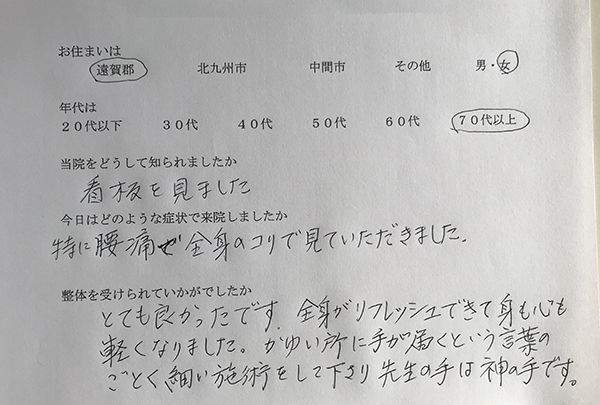 お住まいは
遠賀郡 北九州市 中間市 その他 男・女
年代は
20代以下 30代 40代 50代 60代 70代以上
当院をどうして知られましたか
看板を見ました
今日はどのような症状で来院しましたか
特に腰痛で全身のコリで見ていただきました。
整体を受けられていかがでしたか
とても良かったです。全身がリフレッシュできて身も心も
軽くなりました。かゆい所に手が届くという言葉の
ごとく細い施術をして下さり先生の手は神の手です。